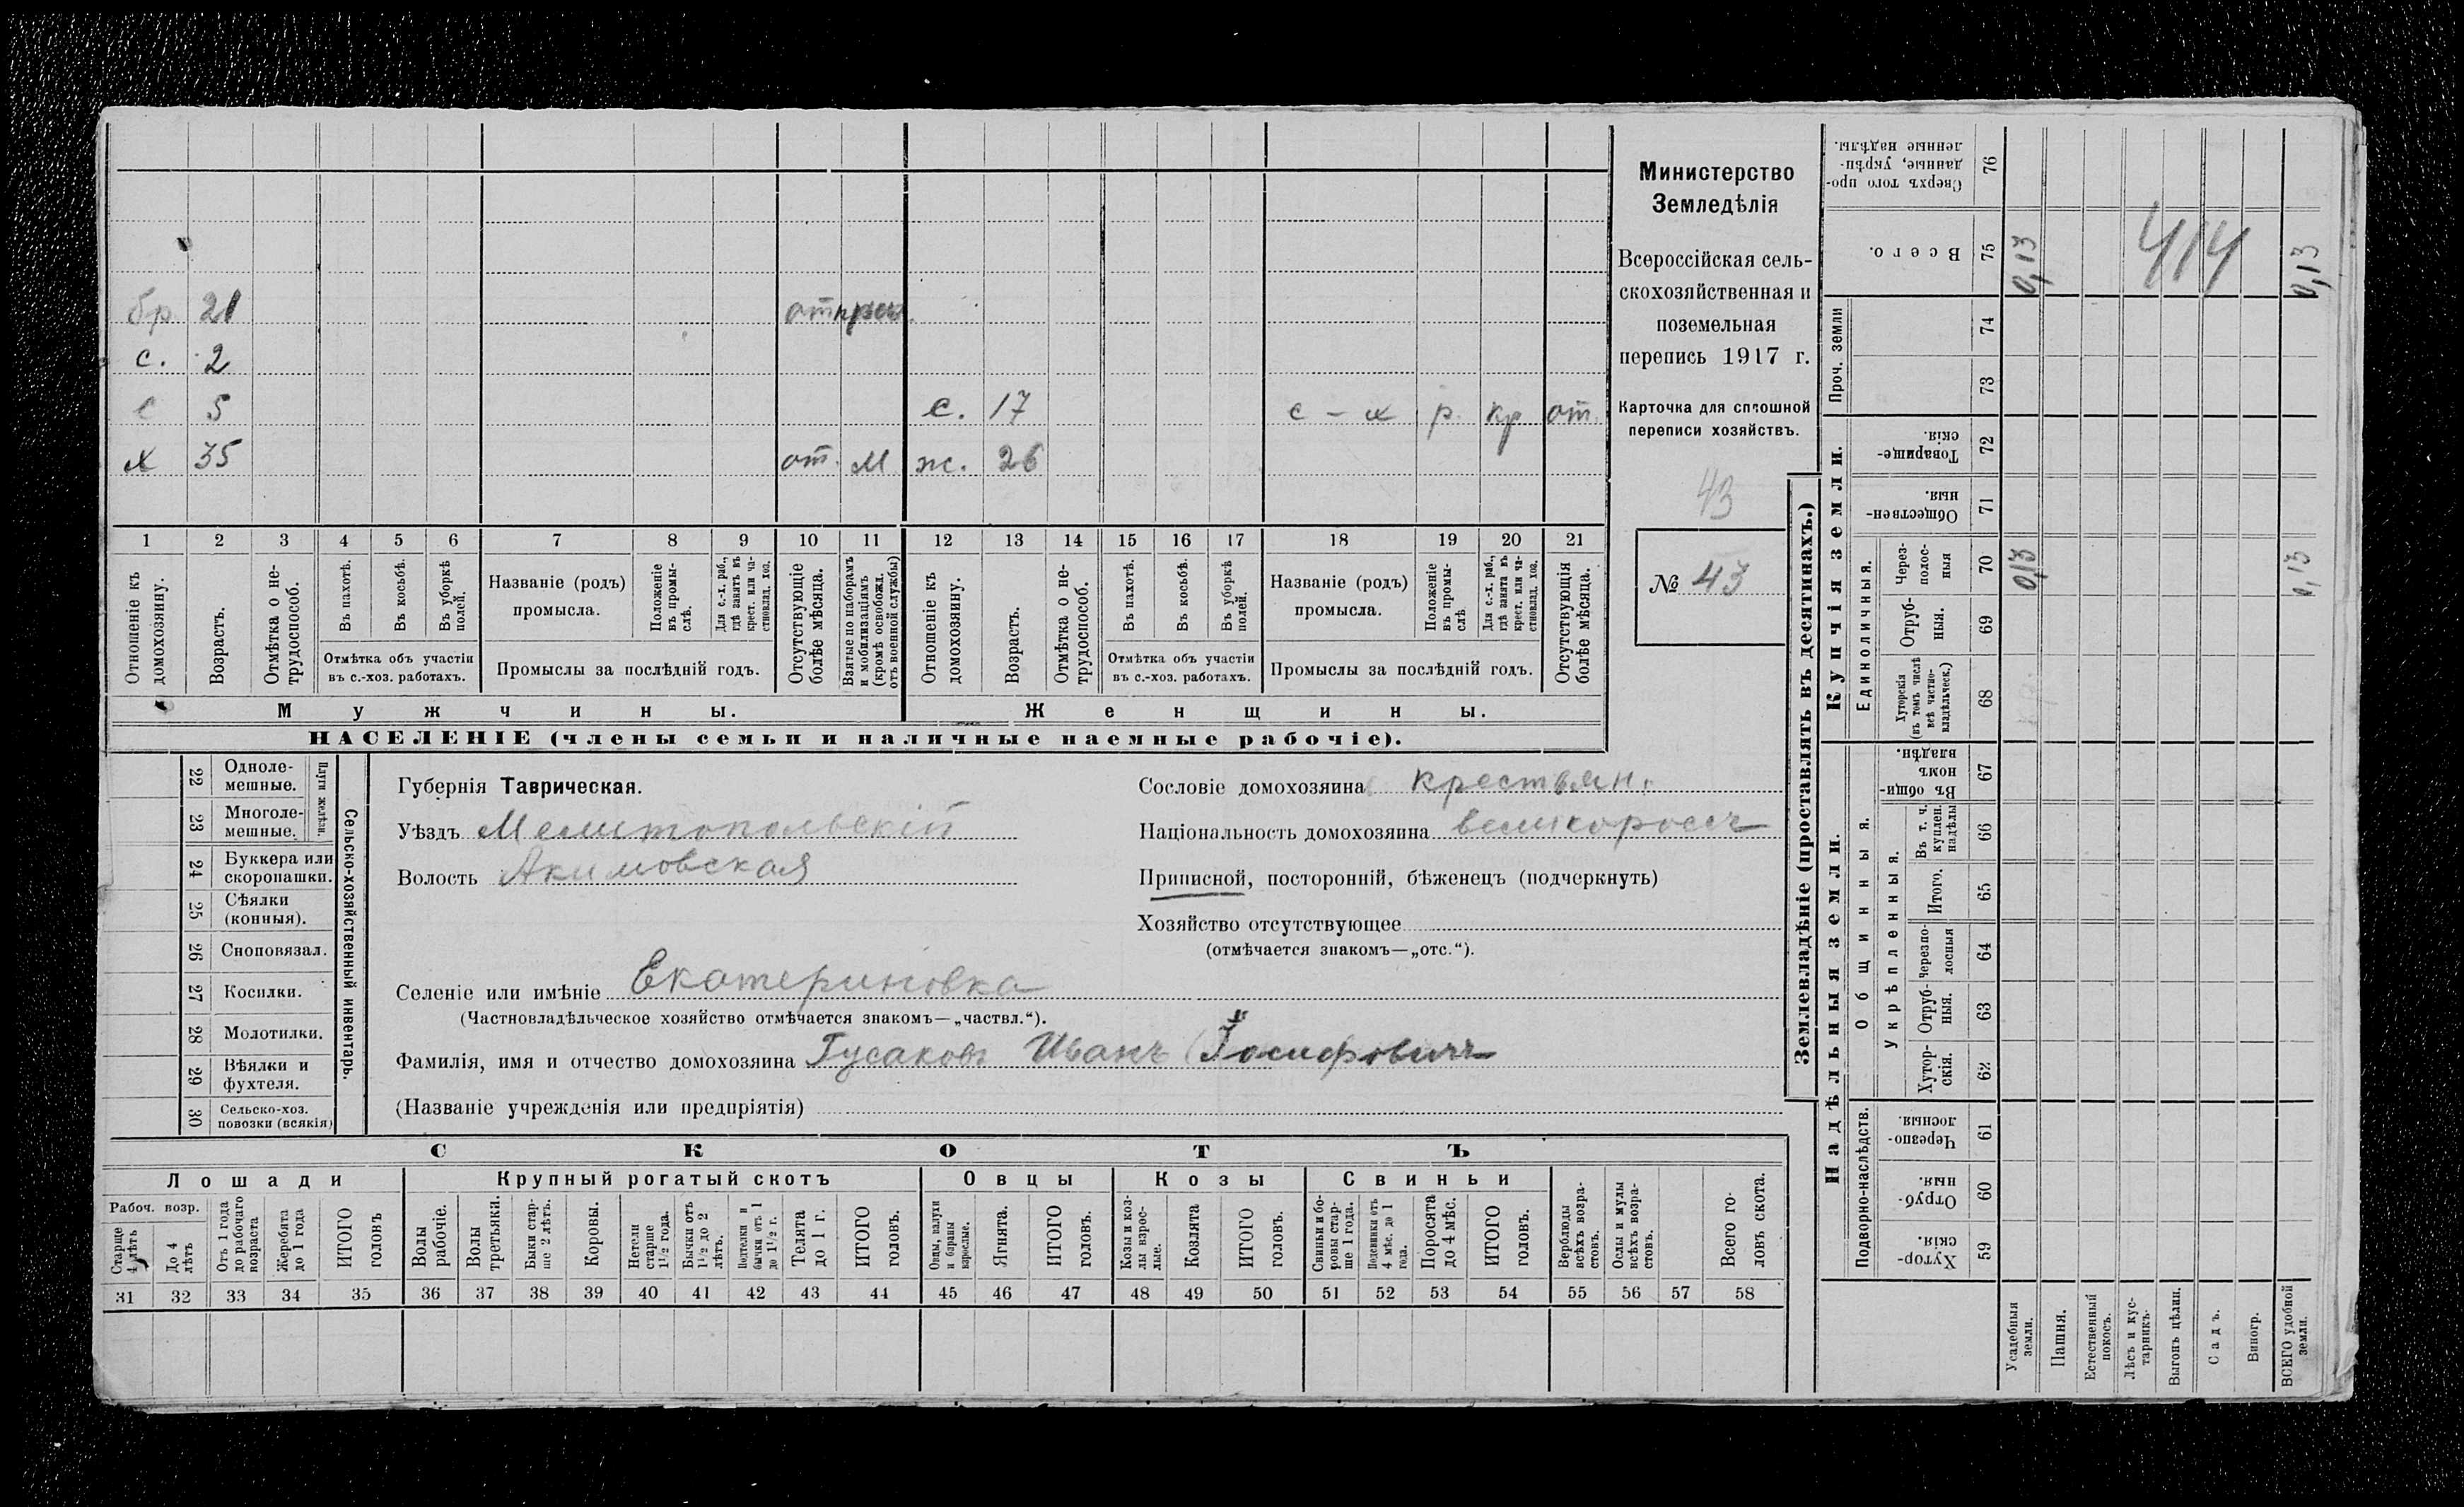 бр. 21
с. 2
с 5 с. 17 с - х р. кр от.
х 35 от. М ж. 26
1 2 3 4 5 6 7 8 9 10 11 12 13 14 15 16 17 18 19 20 21
Отношеніе къ домохозяину.
Возрастъ.
Отмѣтка о не-
трудоспособ.
Въ пахотѣ.
Въ косьбѣ.
Въ уборкѣ
полей.
Отмѣтка объ участіи
въ с.-хоз. работахъ.
Названіе (родъ)
промысла.
Положеніе
въ промы-
слѣ.
Для с.-х. раб.,
гдѣ занятъ въ
крест. или ча-
стновлад. хоз.
Промыслы за послѣдній годъ.
Отсутствующіе
болѣе мѣсяца.
Взятые по наборамъ
и мобилизаціямъ
(кромѣ освобожд.
отъ военной службы)
Отношеніе къ
домохозяину.
Возрастъ.
Отмѣтка о не-
трудоспособ.
Въ пахотѣ.
Въ косьбѣ.
Въ уборкѣ
полей.
Отмѣтка объ участіи
въ с.-хоз. работахъ.
Названіе (родъ)
промысла.
Положеніе
въ промы-
слѣ
Для с.-х. раб.,
гдѣ занята въ
крест. или ча-
стновлад. хоз.
Промыслы за послѣдній годъ.
Отсутствующія
болѣе мѣсяца.
Мужчины. Женщины.
НАСЕЛЕНІЕ (члены семьи и наличные наемные рабочіе).
Министерство
Земледѣлія
Всероссійская сель-
скохозяйственная и
поземельная
перепись 1917 г.
Карточка для сплошной
переписи хозяйствъ.
43
№ 43
22 Одноле-
мешные.
23 Многоле-
мешные.
Плуги желѣзн.
24 Буккера или
скоропашки.
25 Сѣялки
(конныя).
26 Сноповязал.
27 Косилки.
28 Молотилки.
29 Вѣялки и
фухтеля.
30 Сельско-хоз.
повозки (всякія)
Сельско-хозяйственный инвентарь.
Губернія Таврическая.
Уѣздъ Мелитопольскій
Волость Акимовская
Сословіе домохозяина крестьян.
Національность домохозяина великороссъ
Приписной, посторонній, бѣженецъ (подчеркнуть)
Хозяйство отсутствующее
(отмѣчается знакомъ—„отс.“).
Селеніе или имѣніе Екатериновка
(Частновладѣльческое хозяйство отмѣчается знакомъ—„частвл.“).
Фамилія, имя и отчество домохозяина Гусаковъ Иванъ Іосифовичъ
(Названіе учрежденія или предпріятія)
СКОТЪ
Лошади Крупный рогатый скотъ Овцы Козы Свиньи
Рабоч. возр.
Старше
4 лѣтъ
До 4
лѣтъ
Отъ 1 года
до рабочаго
возраста
Жеребята
до 1 года
ИТОГО
головъ
Волы
рабочіе.
Волы
третьяки.
Быки стар-
ше 2 лѣтъ.
Коровы.
Нетели
старше
1½ года.
Бычки отъ
1½ до 2
лѣтъ.
Подтелки и
бычки отъ 1
до 1½ г.
Телята
до 1 г.
ИТОГО
головъ.
Овцы, валухи
и бараны
взрослые.
Ягнята.
ИТОГО
головъ.
Козы и коз-
лы взрос-
лые.
Козлята
ИТОГО
головъ.
Свиньи и бо-
ровы стар-
ше 1 года.
Подсвинки отъ
4 мѣс. до 1
года.
Поросята
до 4 мѣс.
ИТОГО
головъ.
Верблюды
всѣхъ возра-
стовъ.
Ослы и мулы
всѣхъ возра-
стовъ.
Всего го-
ловъ скота.
31 32 33 34 35 36 37 38 39 40 41 42 43 44 45 46 47 48 49 50 51 52 53 54 55 56 57 58
Землевладѣніе (проставлять въ десятинахъ.)
Купчія земли.
Надѣльныя земли.
Сверхъ того про-
данные, укрѣп-
ленные надѣлы. 76
Всего. 75 0,13 414 0,13
Проч. земли 74
73
Товарище-
скія. 72
Обществен-
ныя. 71
Единоличныя.
Через-
полос-
ныя 70 0,13 0,13
Отруб-
ныя. 69
Хуторскія
(въ томъ числѣ
всѣ частно-
владѣльческ.) 68
Общинныя.
Въ общи-
номъ
владѣн. 67
Укрѣпленныя.
Въ т. ч.
куплен.
надѣлы 66
Итого. 65
Черезпо-
лосныя 64
Отруб-
ныя. 63
Хутор-
скія. 62
Подворно-наслѣдств.
Черезпо-
лосныя. 61
Отруб-
ныя. 60
Хутор-
скія. 59
Усадебныя
земли.
Пашня.
Естественный
покосъ.
Лѣсъ и кус-
тарникъ.
Выгонъ цѣлин.
Садъ.
Виногр.
ВСЕГО удобной
земли.